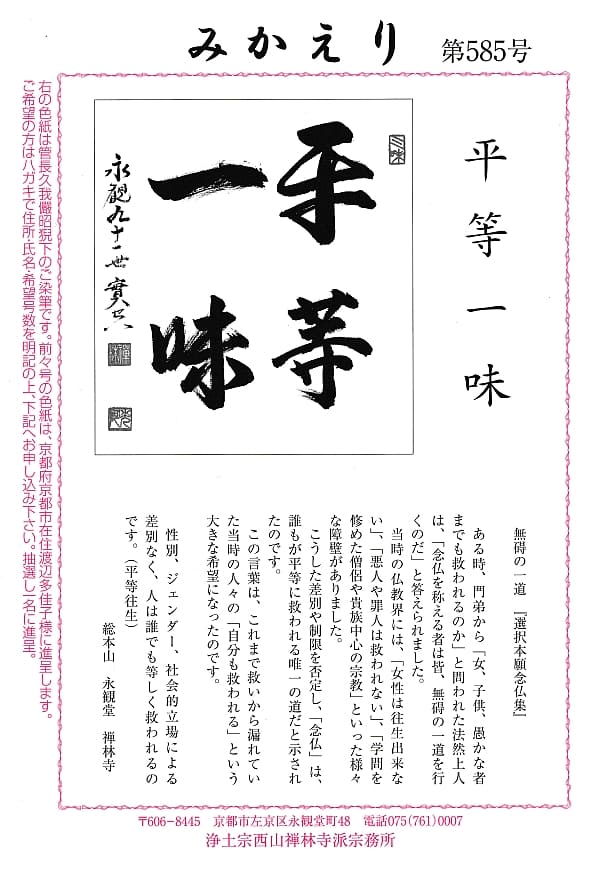 みかえり 第585号
平等一味
平等
一味
永観九十一世
無碍の一道 『選択本願念仏集』
ある時、門弟から「女、子供、愚かな者
までも救われるのか」と問われた法然上人
は、「念仏を称える者は皆、無碍の一道を行
くのだ」と答えられました。
当時の仏教界には、「女性は往生出来な
い」、「悪人や罪人は救われない」、「学問を
修めた僧侶や貴族中心の宗教」といった様々
な障壁がありました。
こうした差別や制限を否定し、「念仏」は、
誰もが平等に救われる唯一の道だと示され
たのです。
この言葉は、これまで救いから漏れてい
た当時の人々の「自分も救われる」という
大きな希望になったのです。
性別、ジェンダー、社会的立場による
差別なく、人は誰でも等しく救われるの
です。（平等往生）
総本山 永観堂 禅林寺
右の色紙は管長久我儼昭猊下のご染筆です。前々号の色紙は、京都府京都市在住渡辺多佳子様に進呈します。
ご希望の方はハガキで住所・氏名・希望号数を明記の上、下記へお申し込み下さい。抽選し一名に進呈。
〒606-8445 京都市左京区永観堂町48 電話075(761)0007
浄土宗西山禅林寺派宗務所